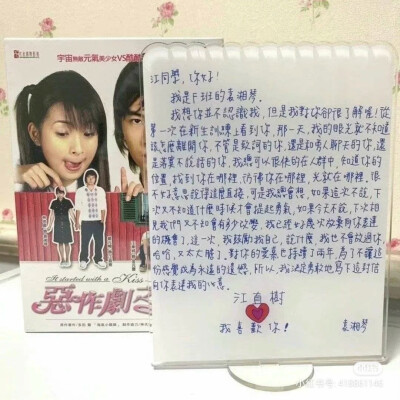 宇宙無敵元氣美少女VS酷酷
It started with a Kiss
惡作劇之
江同學，你好！
我是F班的袁湘琴。
我想你並不認識我，但是我對你卻很了解喔！從
第一次在新生訓練上看到你，那一天，我的眼光就不知道
該怎麼離開你，不管是
你，還是和別人聊天的你，還
是落寞不說話的你，我總可以很快的在人群中，知道你的
位置，找到你在哪裡，彷彿你在哪裡，光就在哪裡，很
不好意思說得這麼直接，可是我總會想，如果這次不說，下
次又不知道什麼時候才會提起勇氣，如果今天不說，下次相
見我們又不知會有多少改變，我已經好幾次放棄向你表達
的機會了，這一次，我鼓勵我自己，說什麼，我也不會放過你，
哈哈，又太大膽了，對你的愛慕也持續了兩年，為了不讓這
份感覺成為永遠的遺憾，所以，我決定勇敢地寫下這封信
向你表達我的心意。
江直樹
我喜歡你！
袁湘琴
小红书